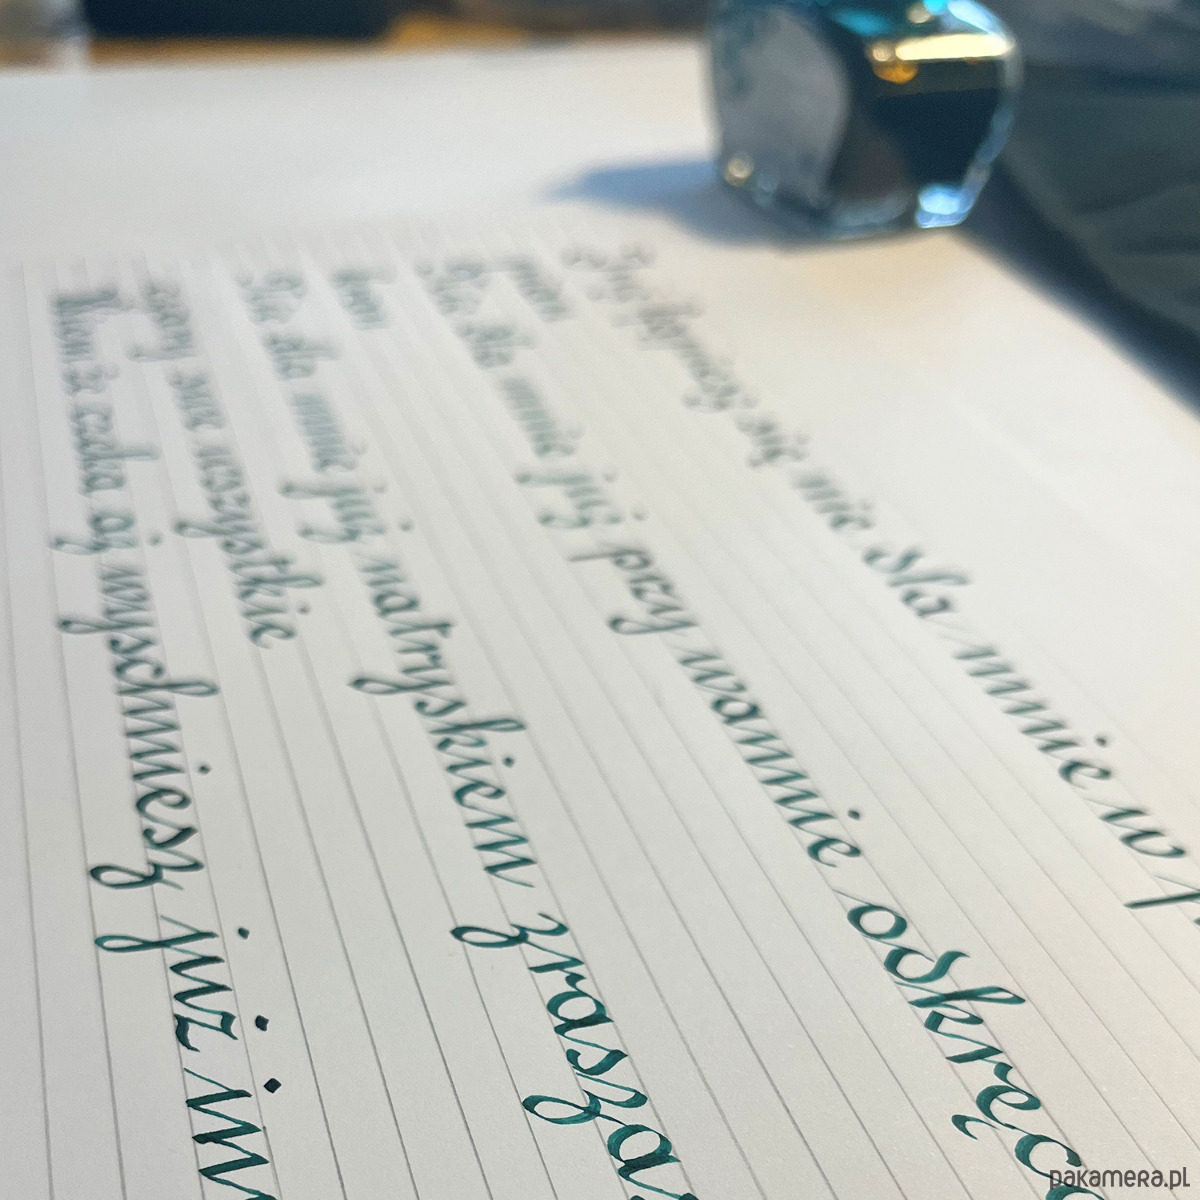 Już kąpiesz się nie dla mnie w p
pian
Nie dla mnie już przy wannie odkręca
kran
Nie dla mnie już natryskiem zrasza
czary swe wszystkie
że cała wyschniesz już
pakamera.pl